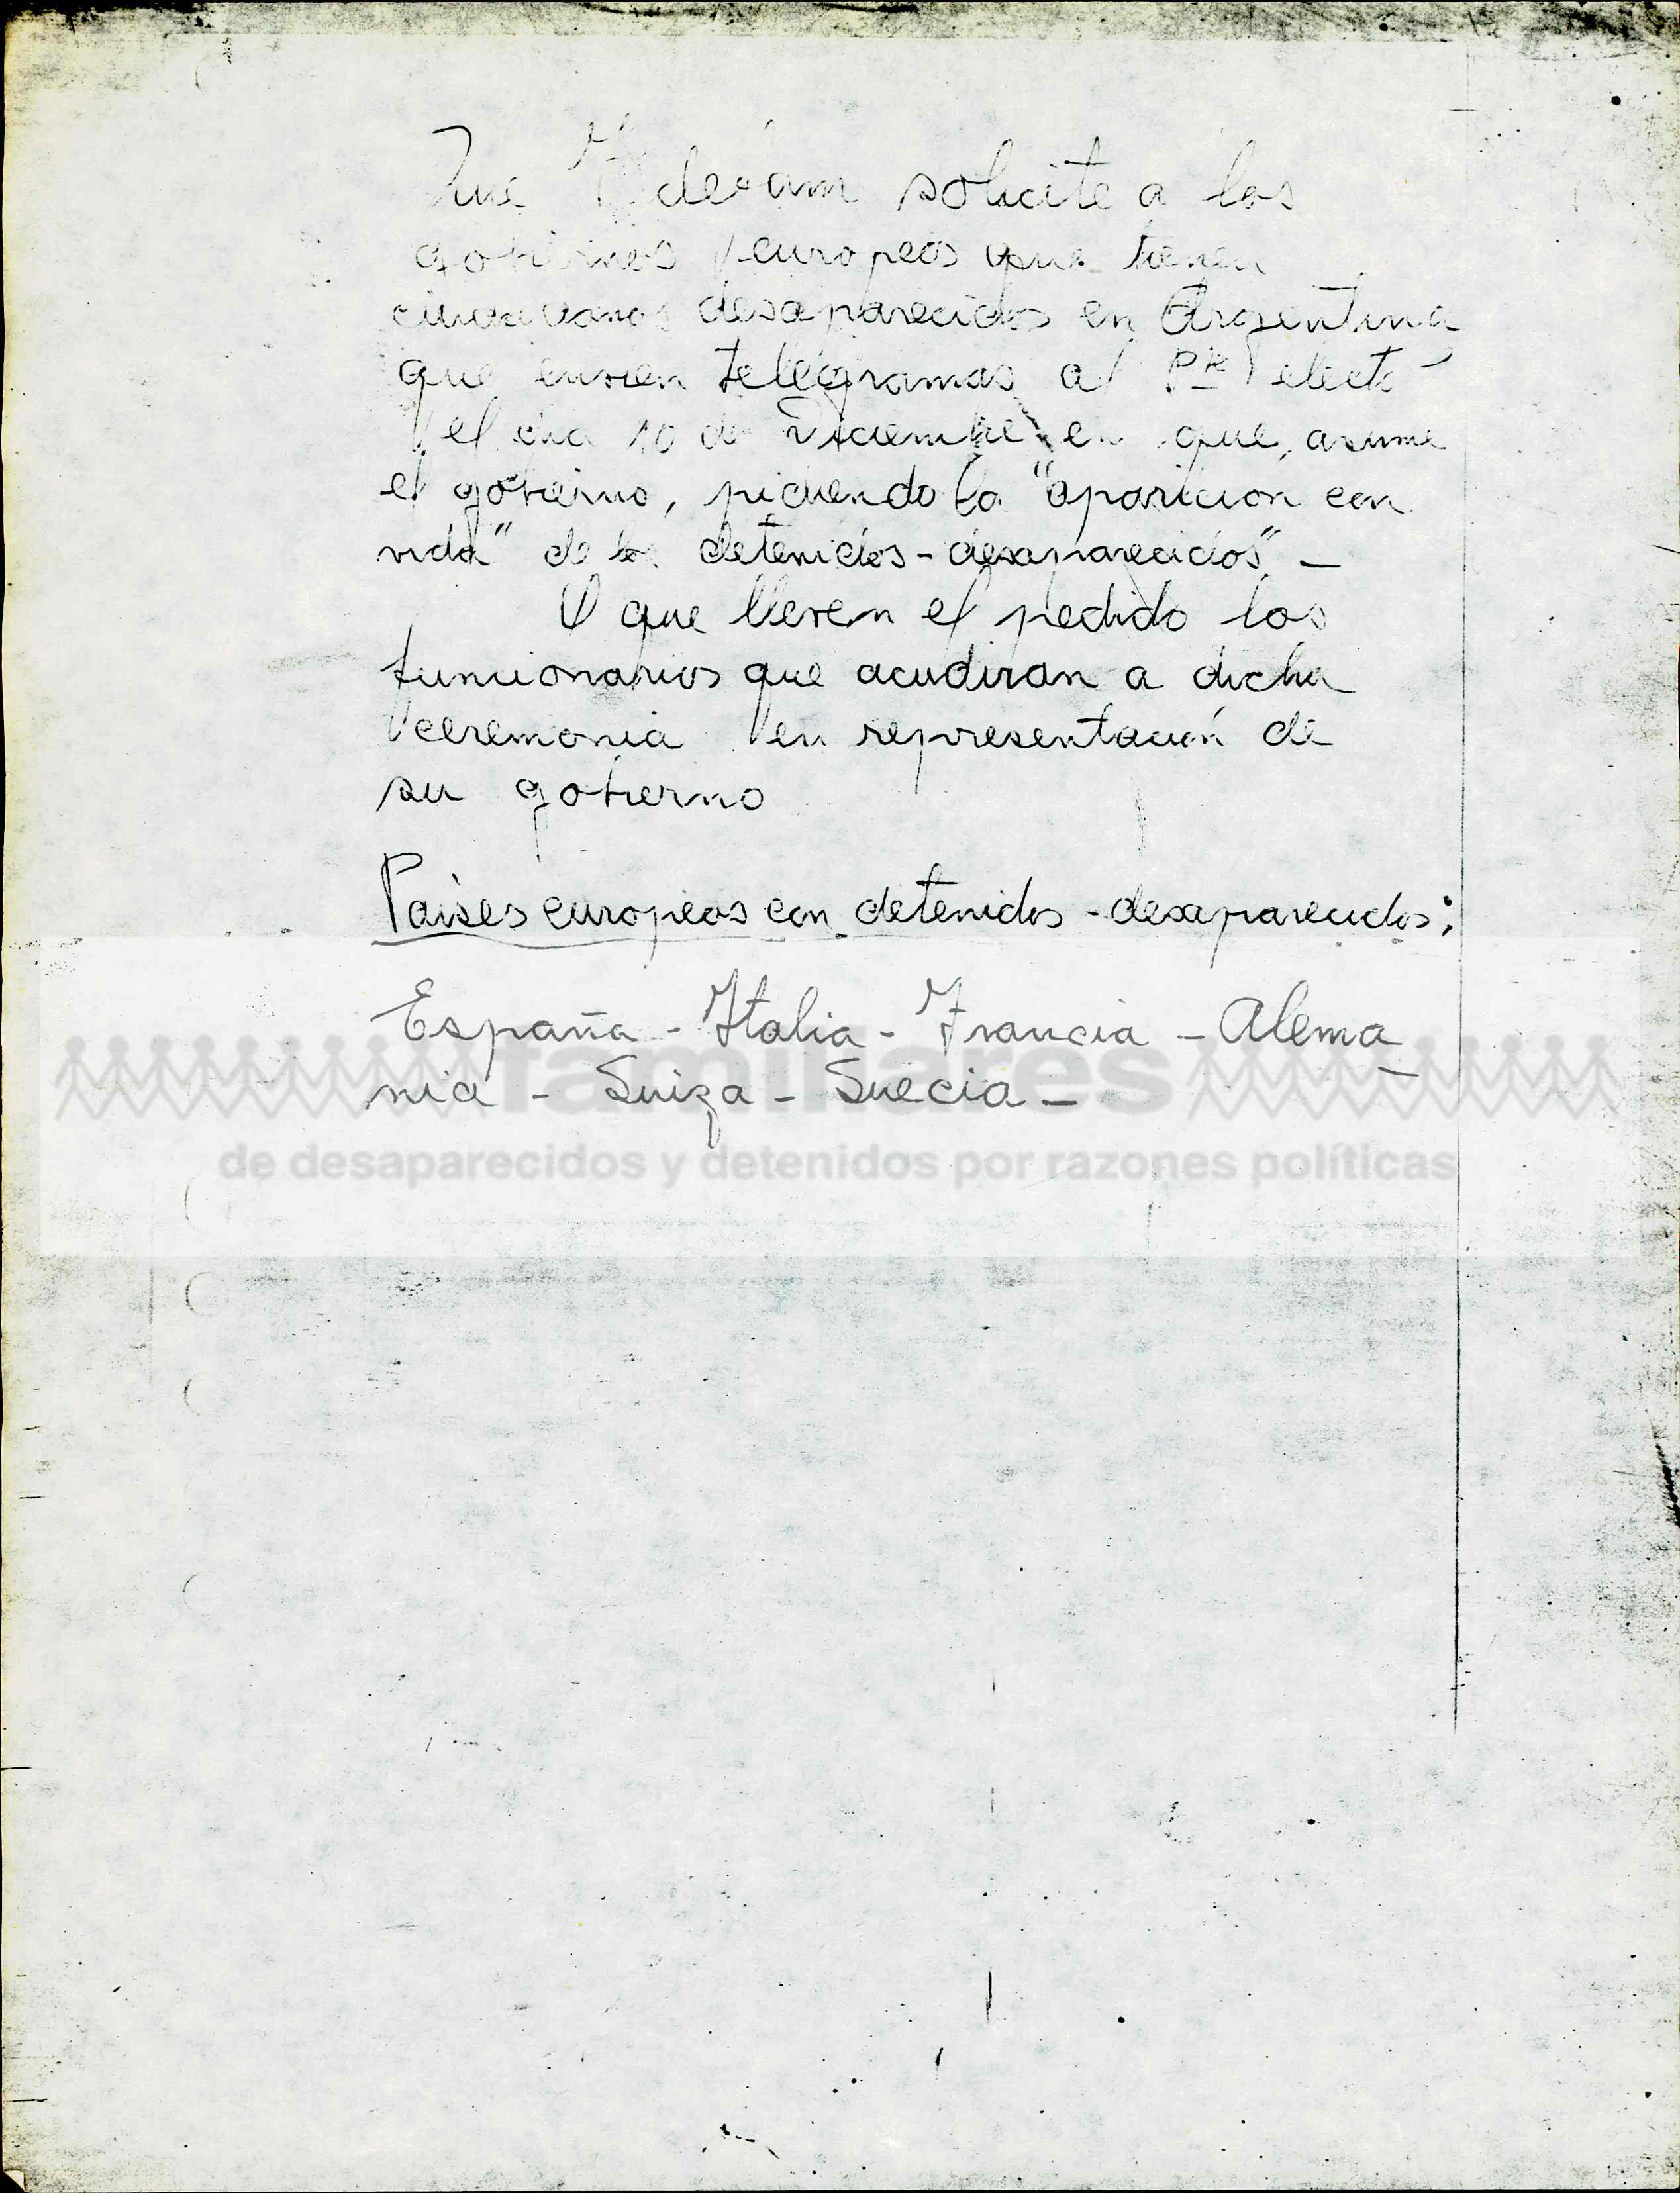 Que Fedefam solicite a los
gobiernos europeos que tienen
ciudadanos desaparecidos en Argentina
que envien telegramas al Pte electo
el dia 10 de Diciembre, en que asume
el gobierno, pidiendo la "aparicion con
vida" de los detenidos-desaparecidos" -
O que lleven el pedido los
funcionarios que acudiran a dicha
ceremonia en representación de
su gobierno
Paises europeos con detenidos-desaparecidos:
España - Italia - Francia - Alema
nia - Suiza - Suecia -
familiares
de desaparecidos y detenidos por razones políticas